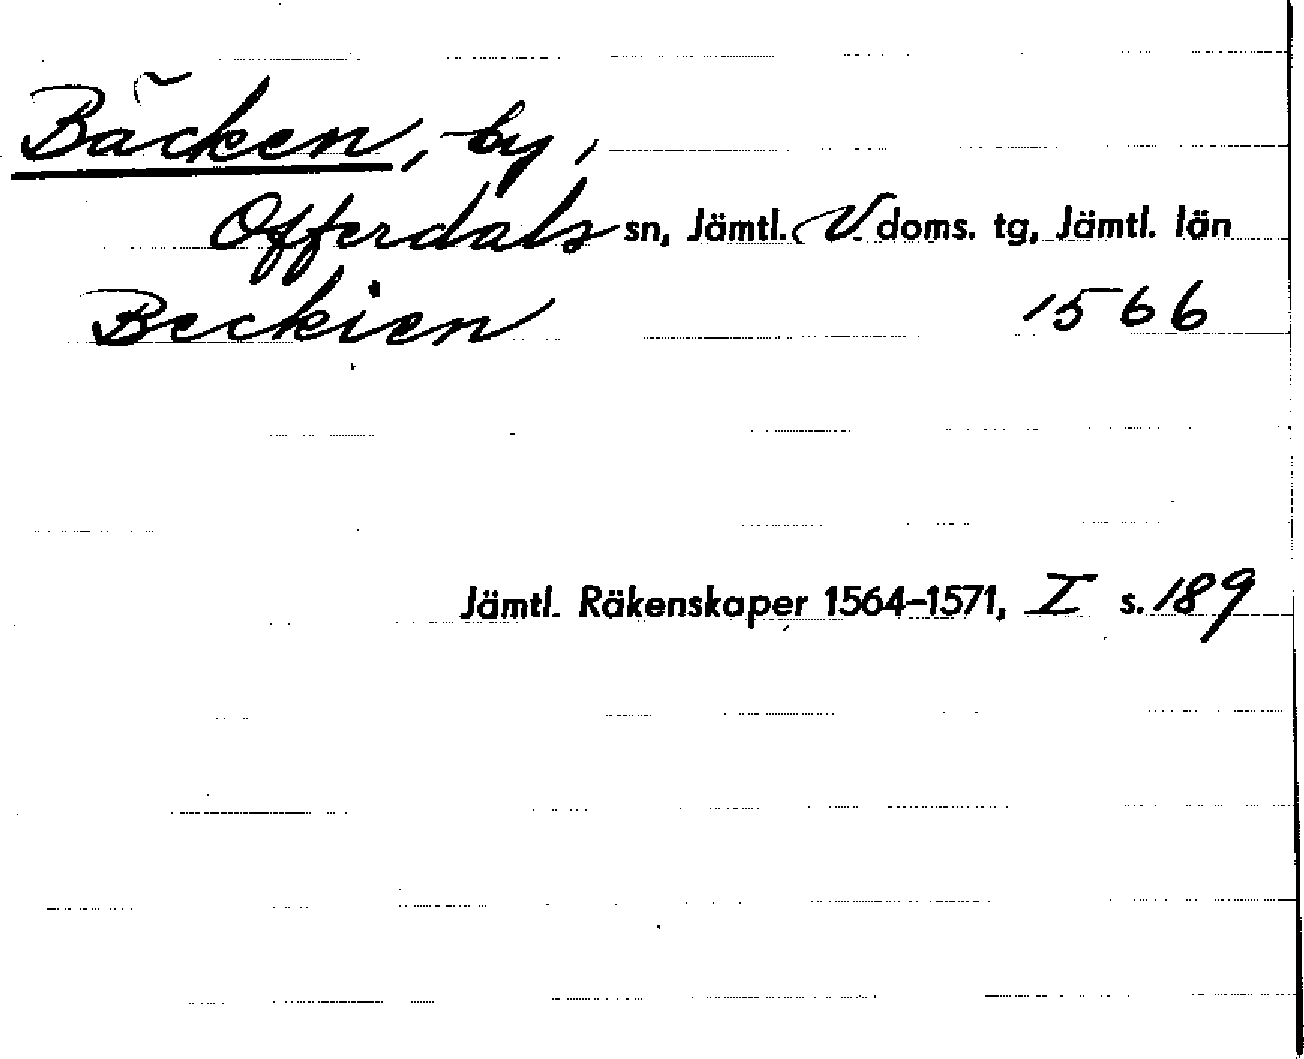 Bäcken, by,
Offerdals sn, Jämtl. V. doms. tg, Jämtl. län
Beckien 1566
Jämtl. Räkenskaper 1564-1571, I s. 189